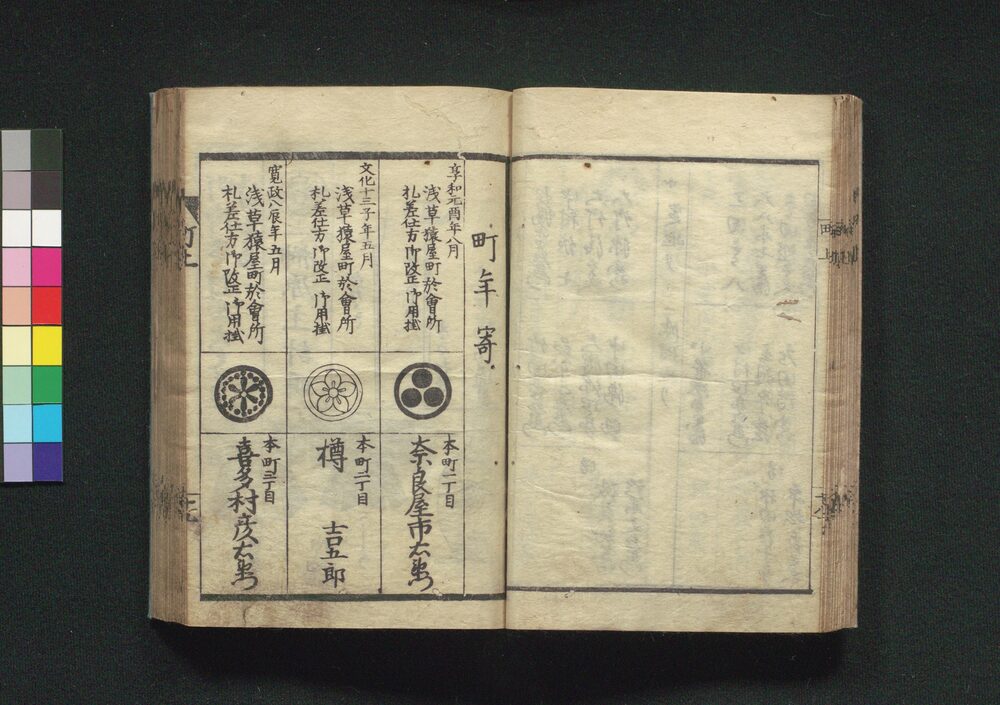 町年寄
享和元酉年八月
浅草猿屋町於會所
札差仕方御改正御用掛
本町一丁目
奈良屋市右衛門
文化十三子年五月
浅草猿屋町於會所
札差仕方御改正御用掛
本町二丁目
樽 吉五郎
寛政八辰年五月
浅草猿屋町於會所
札差仕方御改正御用掛
本町三丁目
喜多村彦右衛門